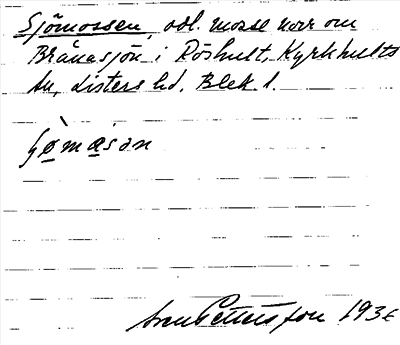 Sjömossen, odl. mosse norr om
Brånasjön i Röshult, Kyrkhults
sn, Listers hd, Blek. l.
Sven Pettersson 193